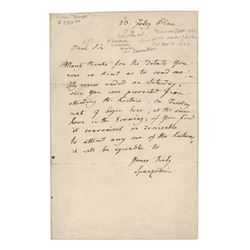 $550.00
23. Foley Place
Dear Sir
Many thanks for the details you
were so kind as to send me.
My course ended on Saturday,
you were prevented from
attending the lecture. On Tuesday
next I begin here, at the same
hour in the Evening; if you find
it convenient or desirable to
attend any one of the lectures,
it will be agreeable to
Yours truly
Spurzheim